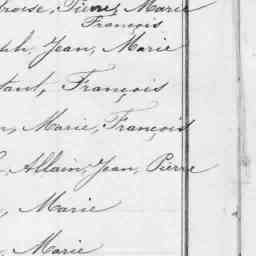 Pierre, Marie
François
Jean, Marie
François
Marie, François
Allain, Jean, Pierre
Marie
Marie